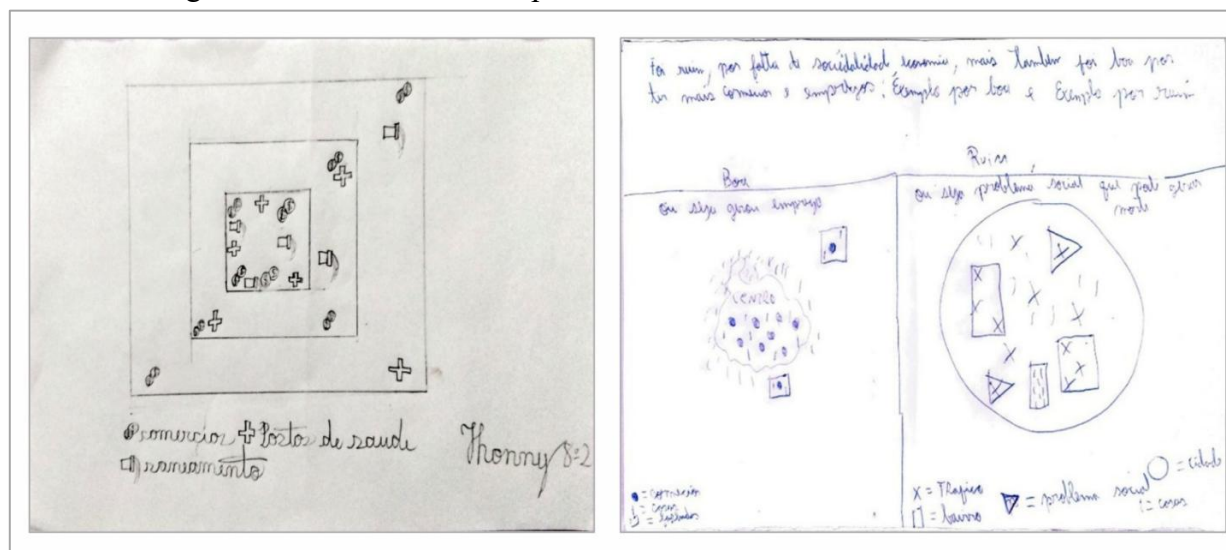 comercios Postos de saude
saneamento
Jhonny 8º2
For ruim, por falta de economia, mais também for boa por
ter mais comercio e empregos: Exemplo por boa e Exemplo por ruim
Boa
Ou seja gerou emprego
CENTRO
= comercios
= casas
Ruim
Ou seja problema social que pode gerar
morte
X = Trafico
= bairro
= problema social
= cidade
= casas